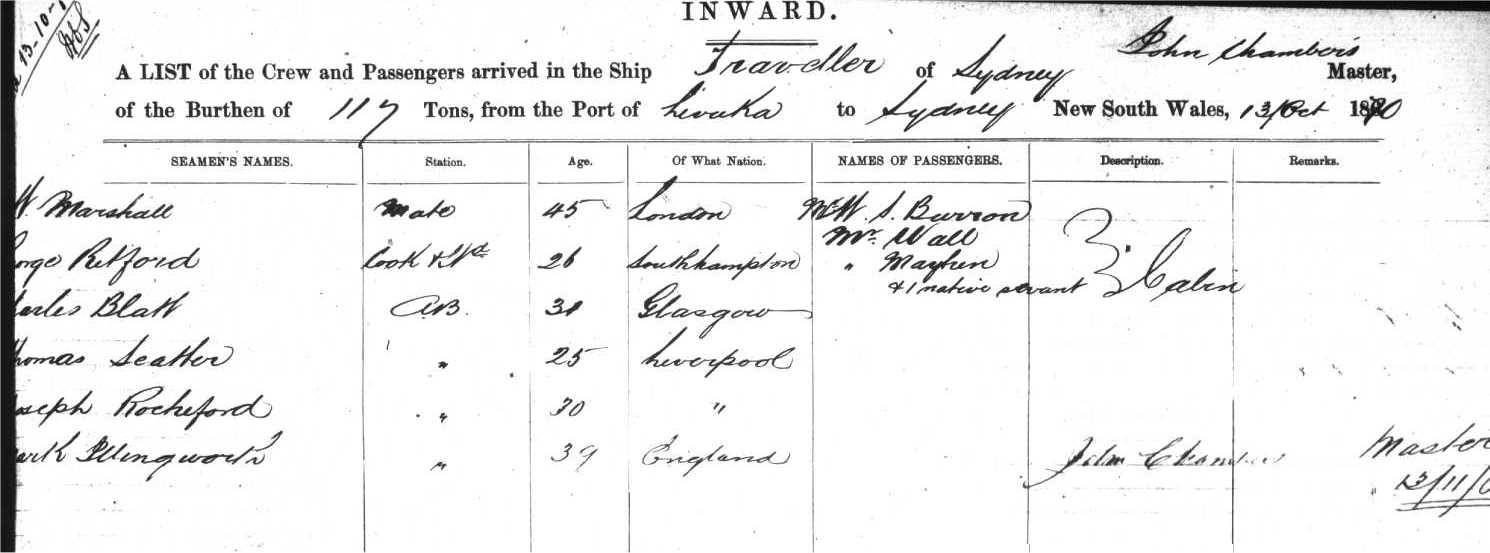 INWARD.
13-10-
A LIST of the Crew and Passengers arrived in the Ship Traveller of Sydney John Chambers Master,
of the Burthen of 117 Tons, from the Port of Levuka to Sydney New South Wales, 13/Oct 1870
SEAMEN'S NAMES. Station. Age. Of What Nation. NAMES OF PASSENGERS. Description. Remarks.
W. Marshall Mate 45 London W. S. Burron
Mr. Wall
orge Retford Cook & Std 26 Southhampton " Mayhen Cabin
& 1 native servant
harles Blatt AB. 31 Glasgow
homas Seatter " 25 Liverpool
oseph Rocheford " 30 "
ark Illingworth " 39 England John Chambers Master
13/11/